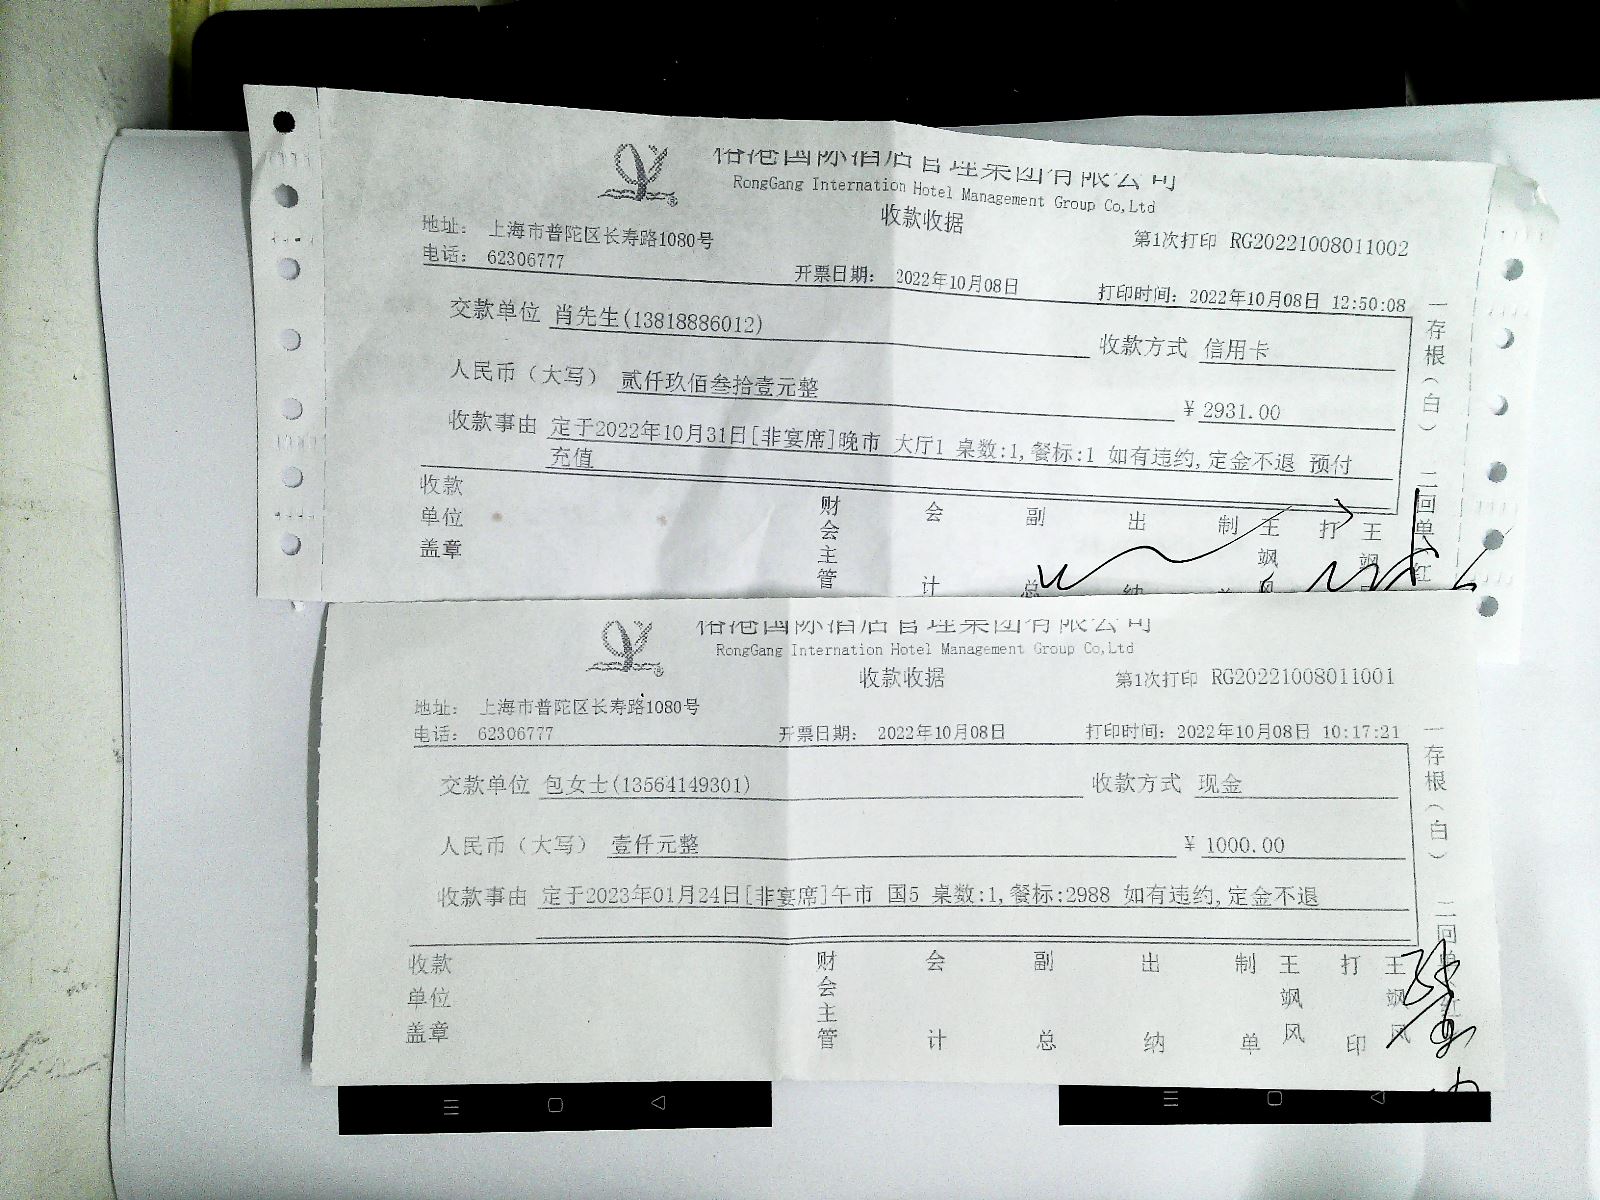 裕港国际酒店管理集团有限公司
RongGang Internation Hotel Management Group Co,Ltd
收款收据
地址: 上海市普陀区长寿路1080号
第1次打印 RG20221008011002
电话: 62306777
开票日期: 2022年10月08日
打印时间: 2022年10月08日 12:50:08
交款单位 肖先生(13818886012)
收款方式 信用卡
人民币（大写） 贰仟玖佰叁拾壹元整
¥ 2931.00
收款事由 定于2022年10月31日[非宴席]晚市 大厅1 桌数:1,餐标:1 如有违约,定金不退 预付
充值
一存根（白） 二回单红
收款单位盖章
财会主管
会计
副总
出纳
制单
王飒风
打
王飒
裕港国际酒店管理集团有限公司
RongGang Internation Hotel Management Group Co,Ltd
收款收据
第1次打印 RG20221008011001
地址: 上海市普陀区长寿路1080号
电话: 62306777
开票日期: 2022年10月08日
打印时间: 2022年10月08日 10:17:21
交款单位 包女士(13564149301)
收款方式 现金
人民币（大写） 壹仟元整
¥ 1000.00
收款事由 定于2023年01月24日[非宴席]午市 国5 桌数:1,餐标:2988 如有违约,定金不退
一存根（白） 二回单红
收款单位盖章
财会主管
会计
副总
出纳
制单
王飒风
打印
王飒风